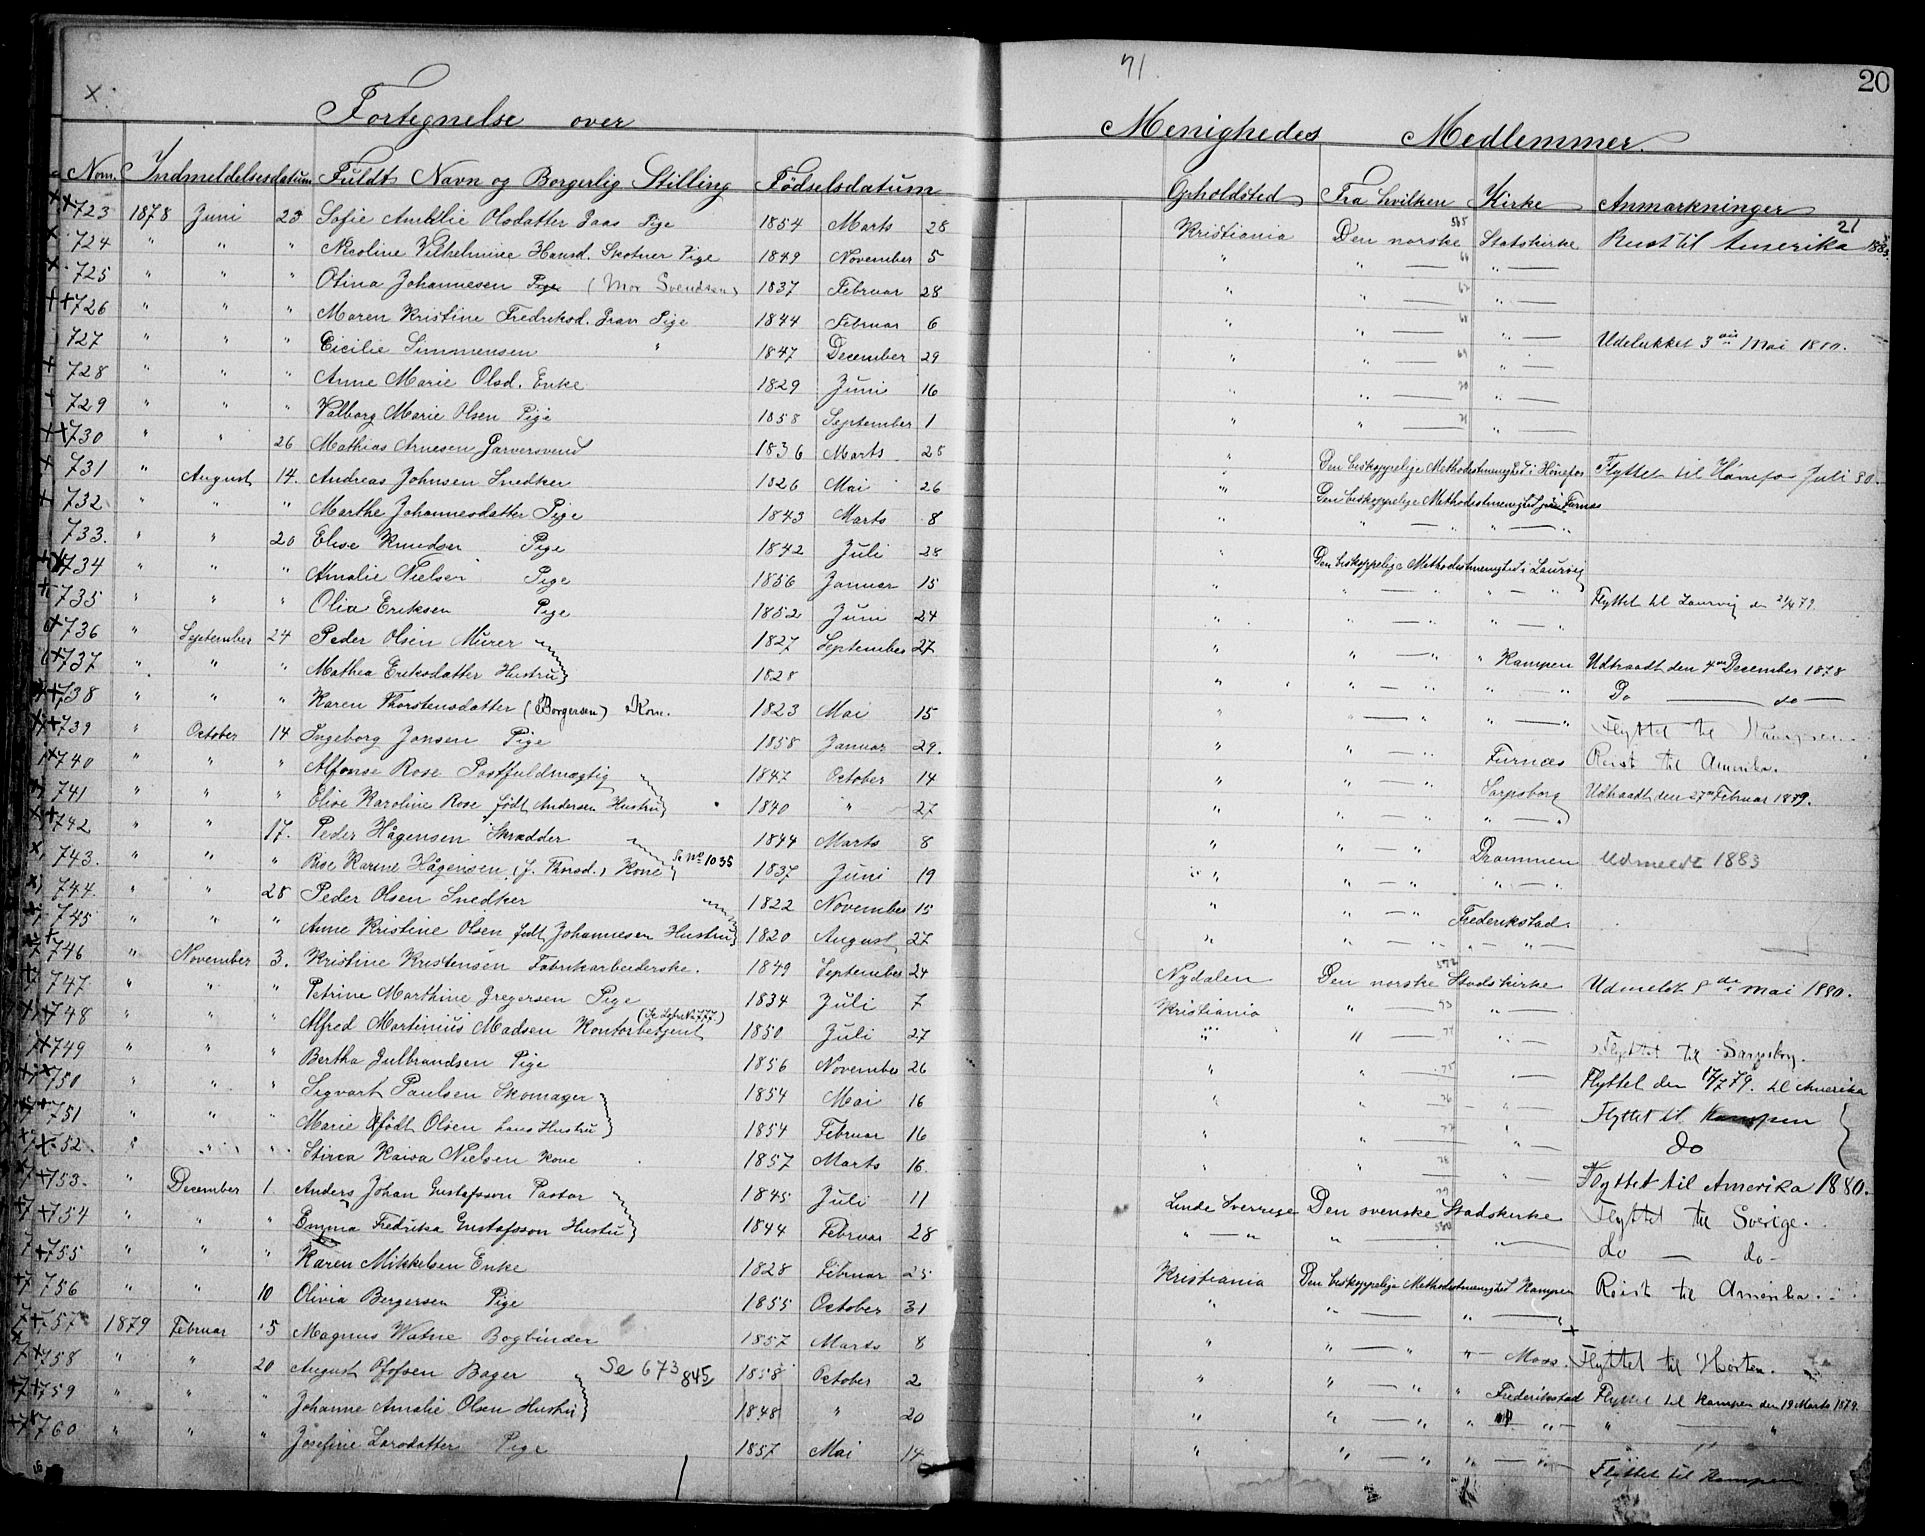 71.
20
Fortegnelse over Menighedes Medlemmer.
Num. Indmeldelsesdatum Fuldt Navn og Borgerlig Stilling Fødselsdatum Opholdsted Fra hvilken Kirke Anmærkninger
723 1878 Juni 25 Sofie Amalie Olsdatter Pige 1854 Marts 28 Kristiania Den norske Statskirke Reist til Amerika
724 " " " Nicoline Vilhelmine Hansd. Skotner Pige 1849 November 5 " " — " —
725 " " " Olina Johannesen Pige (Mor Svendsen) 1837 Februar 28 " " — " —
726 " " " Maren Kristine Fredriksd. Pige 1844 Februar 6 " " — " — Udelukket 3 Mai 1880.
727 " " " Cicilie Simmensen " 1847 December 29 " " — " —
728 " " " Anne Marie Olsd. Enke 1829 Juni 16 " " — " —
729 " " " Valborg Marie Olsen Pige 1858 September 1 " " — " —
730 " " 26 Mathias Arnesen Garversvend 1836 Marts 25 " Den biskoppelige Methodistmenighed i Hønefos Flyttet til Hønefos Juli 80.
731 " August 14. Andreas Johnsen Snedker 1826 Mai 26 " Den biskoppelige Methodistmenighed Furnæs
732 " " " Marthe Johannesdatter Pige 1843 Marts 8 " " — " " — "
733. " " 20 Elise Knudsen Pige 1842 Juli 28 " Den biskoppelige Methodistmenighed i Laurvig
734 " " " Amalie Nielsen Pige 1856 Januar 15 " " — " " — " Flyttet til Laurvig den 21/4 79.
735 " " " Olia Eriksen Pige 1852 Juni 24 " " — " " — "
736 " September 24 Peder Olsen Murer 1827 September 27 " " — " " Kampen Udtraadt den 4 December 1878
737 " " " Mathea Eriksdatter Hustru 1828 " " — " " — " Do — do —
738 " " " Karen Thorstensdatter (Borgersen) Kone. 1823 Mai 15 " " — " " — " Flyttet til Kampen
739 " October 14 Ingeborg Jonsen Pige 1858 Januar 29. " " — " Furnæs Reist til Amerika.
740 " " " Alfonse Rose Postfuldmægtig 1847 October 14 " " — " Sarpsborg Udtraadt den 27 Februar 1889.
741 " " " Elise Karoline Rose født Andersen Hustru 1840 " 27 " " — " " — "
742 " " 17. Peder Hågensen Skrædder 1844 Marts 8 " " — " Drammen Udmeldt 1883
743. " " " Karine Hågensen (f. Thorsd.) Kone Se No 1035 1837 Juni 19 " " — " " — "
744. " " 28 Peder Olsen Snedker 1822 November 15 " " — " Frederikstad
745 " " " Anne Kristine Olsen født Johannesen Hustru 1820 August 27 " " — " " — "
746 " November 3. Kristine Kristensen Fabrikarbeiderske. 1849 September 24 Nydalen Den norske Stadskirke Udmeldt Mai 1880.
747 " " " Petrine Marthine Gregersen Pige 1834 Juli 7 Kristiania " — " —
748 " " " Alfred Martinius Madsen Kontorbetjent 1850 Juli 27 " " — " — Flyttet til Sarpsborg.
749 " " " Bertha Gulbrandsen Pige 1856 November 26 " " — " — Flyttet den 17/7 79. til Amerika
750 " " " Sigvart Paulsen Skomager 1854 Mai 16 " " — " — Flyttet til Kampen
751 " " " Marie født Olsen hans Hustru 1854 Februar 16 " " — " — do
752 " " " Kaisa Nielsen Kone 1857 Marts 16. " " — " — Flyttet til Amerika 1880.
753. " December 1 Anders Johan Gustafsson Pastor 1845 Juli 11 Linde Sverrige Den svenske Stadskirke Flyttet til Sverige.
754 " " " Emma Fredrika Gustafsson Hustru 1844 Februar 28 " — " " — " — do — do —
755 " " " Karen Mikkelsen Enke 1828 Februar 25 Kristiania Den biskoppelige Methodistmenighed Kampen Reist til Amerika.
756 " " 10 Olivia Bergersen Pige 1855 October 31 " " — " — "
757 1879 Februar 5 Magnus Watne Bogbinder 1857 Marts 8 " " — " " — Moss. Flyttet til Horten.
758 " " 20 August Bager Se 673 845 1858 October 2 " " — " " Frederikstad Flyttet til Kampen den 19 Marts 1879.
759 " " " Johanne Amalie Olsen Hustru 1848 " 20 " " — " " — " " "
760 " " " Josefine Larsdatter Pige 1857 Mai 14 " " — " " — " Flyttet til Kampen